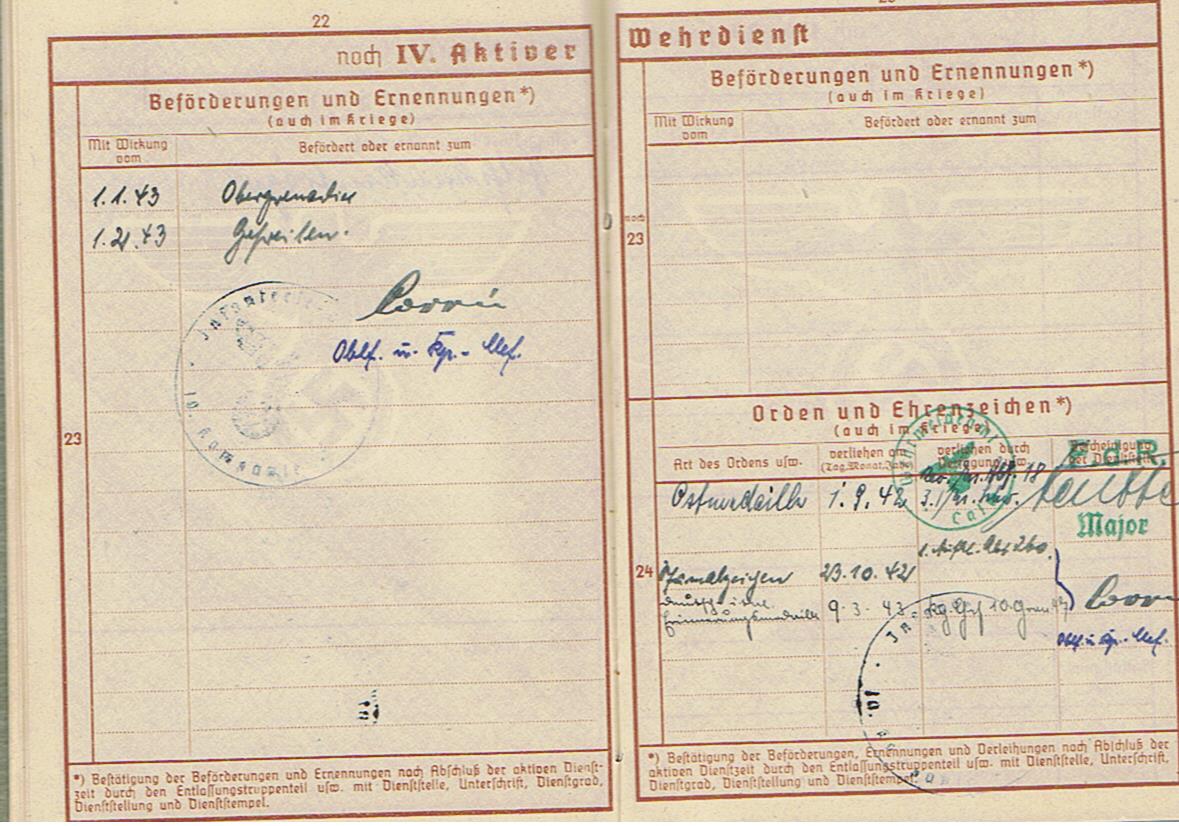 22
noch IV. Aktiver
Beförderungen und Ernennungen*)
(auch im Kriege)
Mit Wirkung vom
Befördert oder ernannt zum
1.1.43 Obergrenadier
43 Gefreiten.
23
Oblt. u. Kp.-
Infanterie
10. Kompanie
*) Bestätigung der Beförderungen und Ernennungen nach Abschluß der aktiven Dienst-
zeit durch den Entlassungstruppenteil usw. mit Dienststelle, Unterschrift, Dienstgrad,
Dienststellung und Dienststempel.
Wehrdienst
Beförderungen und Ernennungen*)
(auch im Kriege)
Mit Wirkung vom
Befördert oder ernannt zum
noch
23
Orden und Ehrenzeichen*)
(auch im Kriege)
Art des Ordens usw.
verliehen am
(Tag, Monat, Jahr)
verliehen durch
Verfügung usw.
Bescheinigung
der Dienststelle
F.d.R.
Ostmedaille 1.9.42
Major
24
23.10.42
Erinnerungsmedaille 9.3.43
Oblt. u. Kp.-
10.
*) Bestätigung der Beförderungen, Ernennungen und Verleihungen nach Abschluß der
aktiven Dienstzeit durch den Entlassungstruppenteil usw. mit Dienststelle, Unterschrift,
Dienstgrad, Dienststellung und Dienststempel.